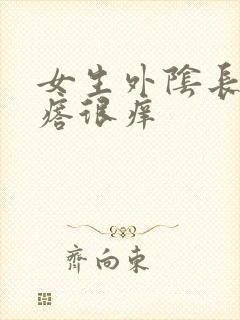 女生外陰長
瘩很痒
齊向東